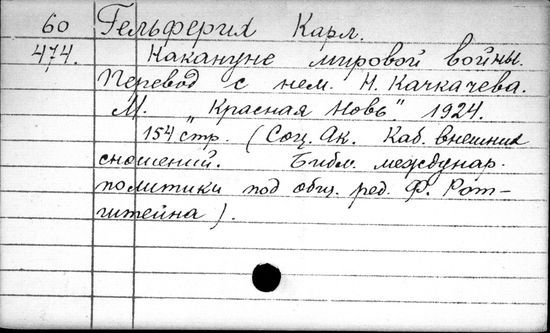 60 Гельферих Карл.
474. Накануне мировой войны.
Перевод с нем. Н. Качкачева.
М. "Красная Новь" 1924.
154 стр. (Соц. Ак. Каб. внешних
сношений. Библ. междунар.
политики под общ. ред. Ф. Рот-
штейна).